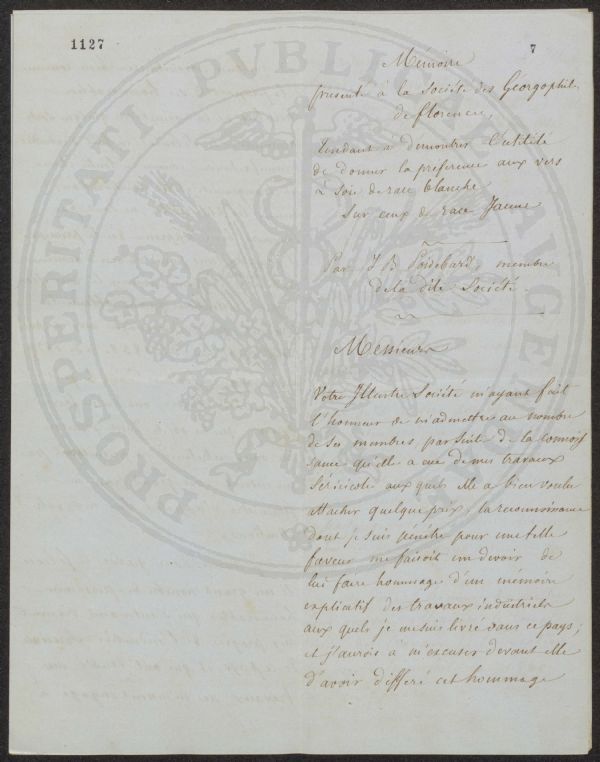 1127
7
Mémoire
présenté à la Société des Géorgophil.
de florence,
tendant a demontrer l'utilité
de donner la préference aux vers
à Soie de race blanche
Sur ceux de race Jaune
Par J B Poidebard, membre
de la dite Société.
Messieurs
Votre Illustre Société m'ayant fait
l'honneur de m'admettre au nombre
de ses membres par suite de la connois
sance qu'elle a eue de mes travaux
Séricicole aux quels elle a bien voulu
attacher quelque prix, la reconnoissance
dont je suis pénétré pour une telle
faveur me faisoit un devoir de
lui faire hommage d'un mémoire
explicatif des travaux industriels
aux quels je me suis livré dans ce pays;
et j'aurois à m'excuser devant elle
d'avoir différé cet hommage
PROSPERITATI PUBLICAE AUGENDAE